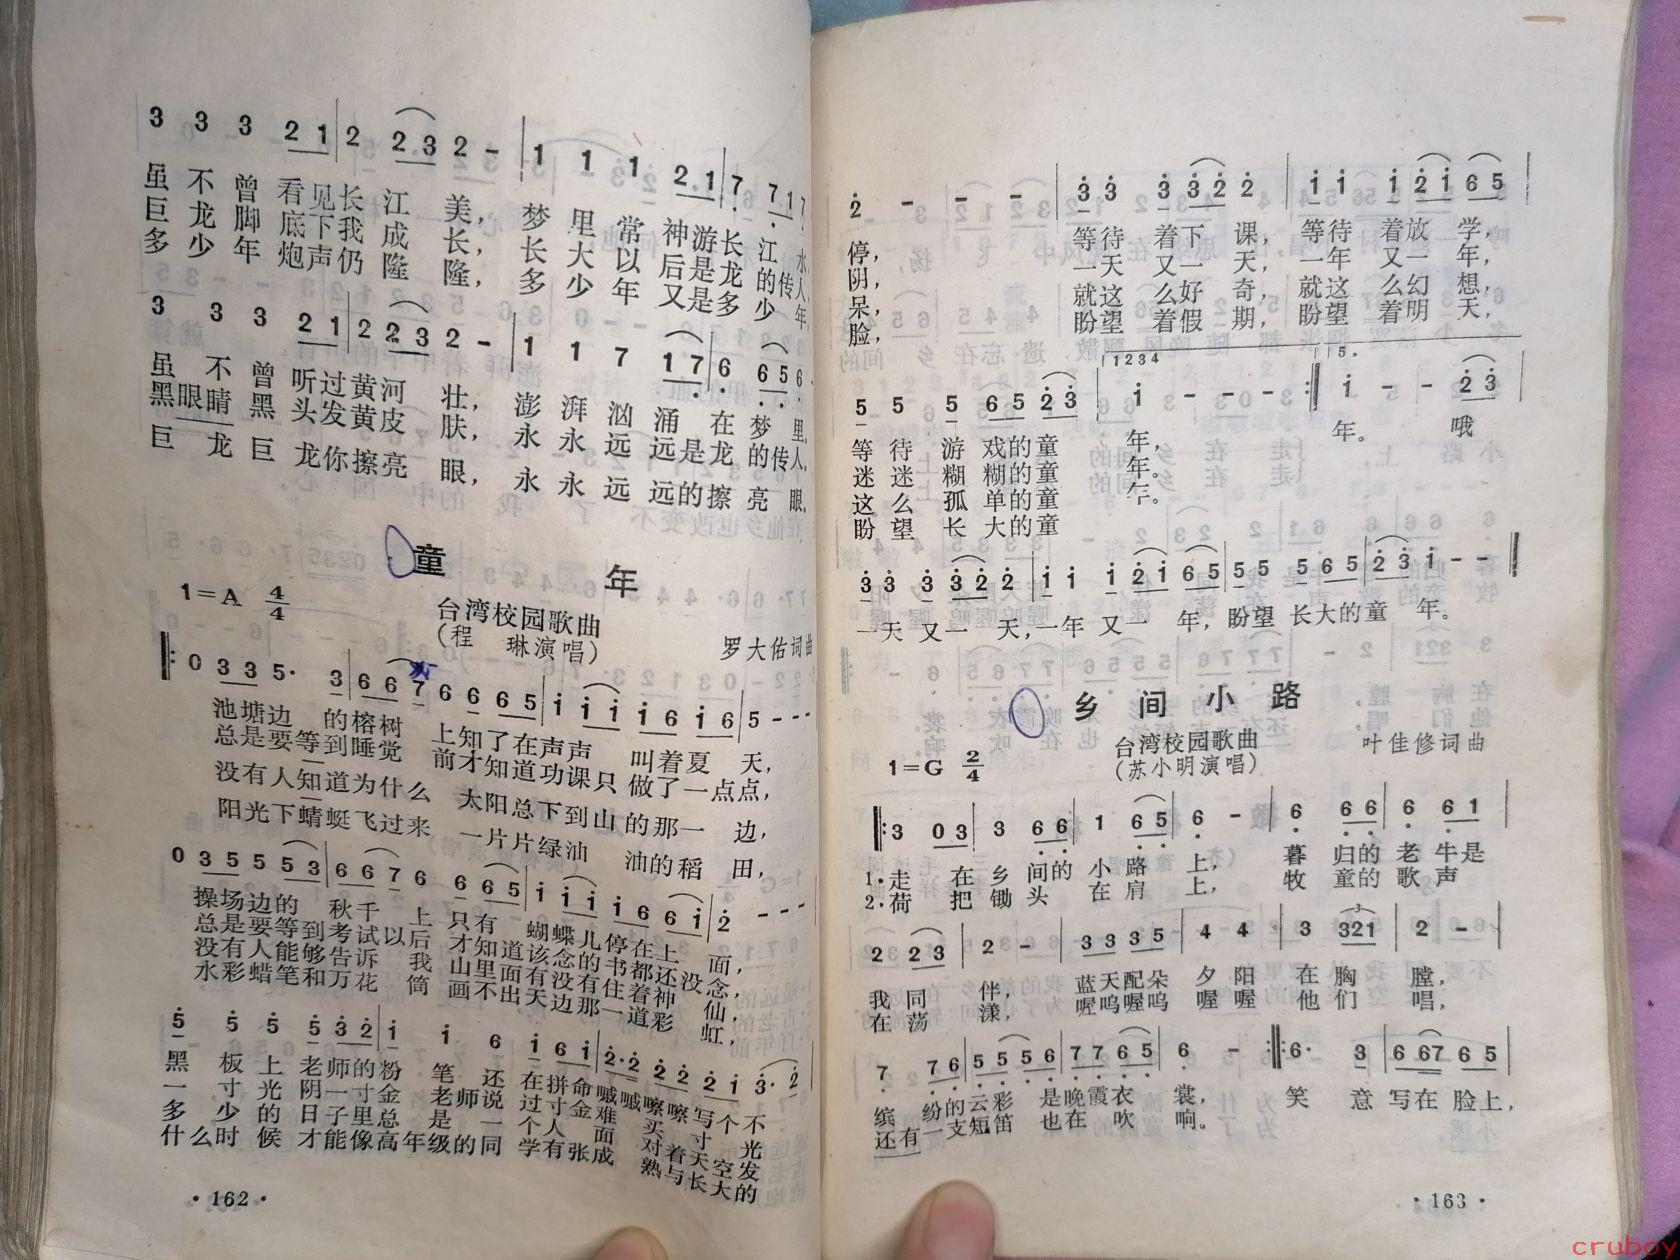 3 3 3 2 1 | 2 2 3 2 - | 1 1 1 2 1 | 7 7 1 7
虽 不 曾 看 见 长 江 美, 梦 里 常 神 游 长 江 水,
巨 龙 脚 底 下 我 成 长, 长 大 以 后 是 龙 的 传 人,
多 少 年 炮 声 仍 隆 隆, 多 少 年 又 是 多 少 年,
3 3 3 2 1 | 2 2 3 2 - | 1 1 7 1 7 | 6 6 5 6
虽 不 曾 听 过 黄 河 壮, 澎 湃 汹 涌 在 梦 里,
黑 眼 睛 黑 头 发 黄 皮 肤, 永 永 远 远 是 龙 的 传 人,
巨 龙 巨 龙 你 擦 亮 眼, 永 永 远 远 的 擦 亮 眼,
童 年
1=A 4/4
台湾校园歌曲
(程 琳演唱)
罗大佑词曲
0 3 3 5· 3 | 6 6 7 6 6 6 5 | i i i i 6 i 6 | 5 - - -
池塘边 的榕树 上知了在声声 叫着夏 天,
总是要等到睡觉 前才知道功课只 做了一点点,
没有人知道为什么 太阳总下到山 的那一 边,
阳光下蜻蜓飞过来 一片片绿油 油的稻 田,
0 3 5 5 5 3 | 6 6 7 6 6 6 5 | i i i i 6 6 i | 2 - - -
操场边的 秋千 上只有 蝴蝶儿停在上 面,
总是要等到考试以后才知道该念的书都还没 念,
没有人能够告诉我山里面有没有住着神 仙,
水彩蜡笔和万花筒画不出天边那一道彩 虹,
5 5 5 5 3 2 | i i 6 i 6 i | 2· 2 2 2 2 i 3· 2
黑 板 上 老师的粉 笔 还在拼命嘁嘁嚓嚓写个不
一 寸 光 阴一寸金 老师说过寸金难买寸光
多 少 的 日子里总 是 一个人面对着天空发
什 么 时 候才能像高年级的同学有张成熟与长大的
· 162 ·
2 - - - | 3 3 3 3 2 2 | i i i 2 i 6 5
停, 等待 着下 课, 等待 着放 学,
阴, 一天 又一 天, 一年 又一 年,
呆, 就这 么好 奇, 就这 么幻 想,
脸, 盼望 着假 期, 盼望 着明 天,
1234 5.
5 5 5 6 5 2 3 | i - - - :| i - - 2 3
等 待 游 戏的童 年, 年。 哦
迷 迷 糊 糊的童 年。
这 么 孤 单的童 年。
盼 望 长 大的童
3 3 3 3 2 2 | i i i 2 i 6 5 | 5 5 5 6 5 2 3 | i - -
一天 又一 天,一年 又一 年, 盼望 长大的童 年。
乡 间 小 路
1=G 2/4
台湾校园歌曲
(苏小明演唱)
叶佳修词曲
3 0 3 | 3 6 6 | 1 6 5 | 6 - | 6 6 6 | 6 6 1
1·走 在 乡 间的 小 路 上, 暮 归的 老 牛是
2·荷 把 锄 头 在 肩 上, 牧 童的 歌 声
2 2 3 | 2 - | 3 3 3 5 | 4 4 | 3 321 | 2 -
我 同 伴, 蓝天配朵 夕 阳 在 胸 膛,
在 荡 漾, 喔呜喔呜 喔 喔 他 们 唱,
7 7 6 | 5 5 5 6 | 7 7 6 5 | 6 - :| 6· 3 | 6 67 6 5
缤 纷的云彩 是晚霞衣 裳。 笑 意 写在 脸上,
还有一支短笛 也在 吹 响。
· 163 ·
cruboy